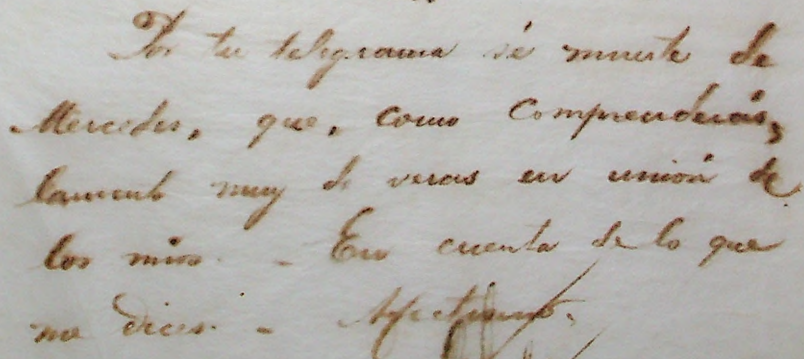 Por tu telegrama sé muerte de
Mercedes, que, como comprenderás,
lamento muy de veras en unión de
los mios. - En cuenta de lo que
me dices. - Afectísimo.